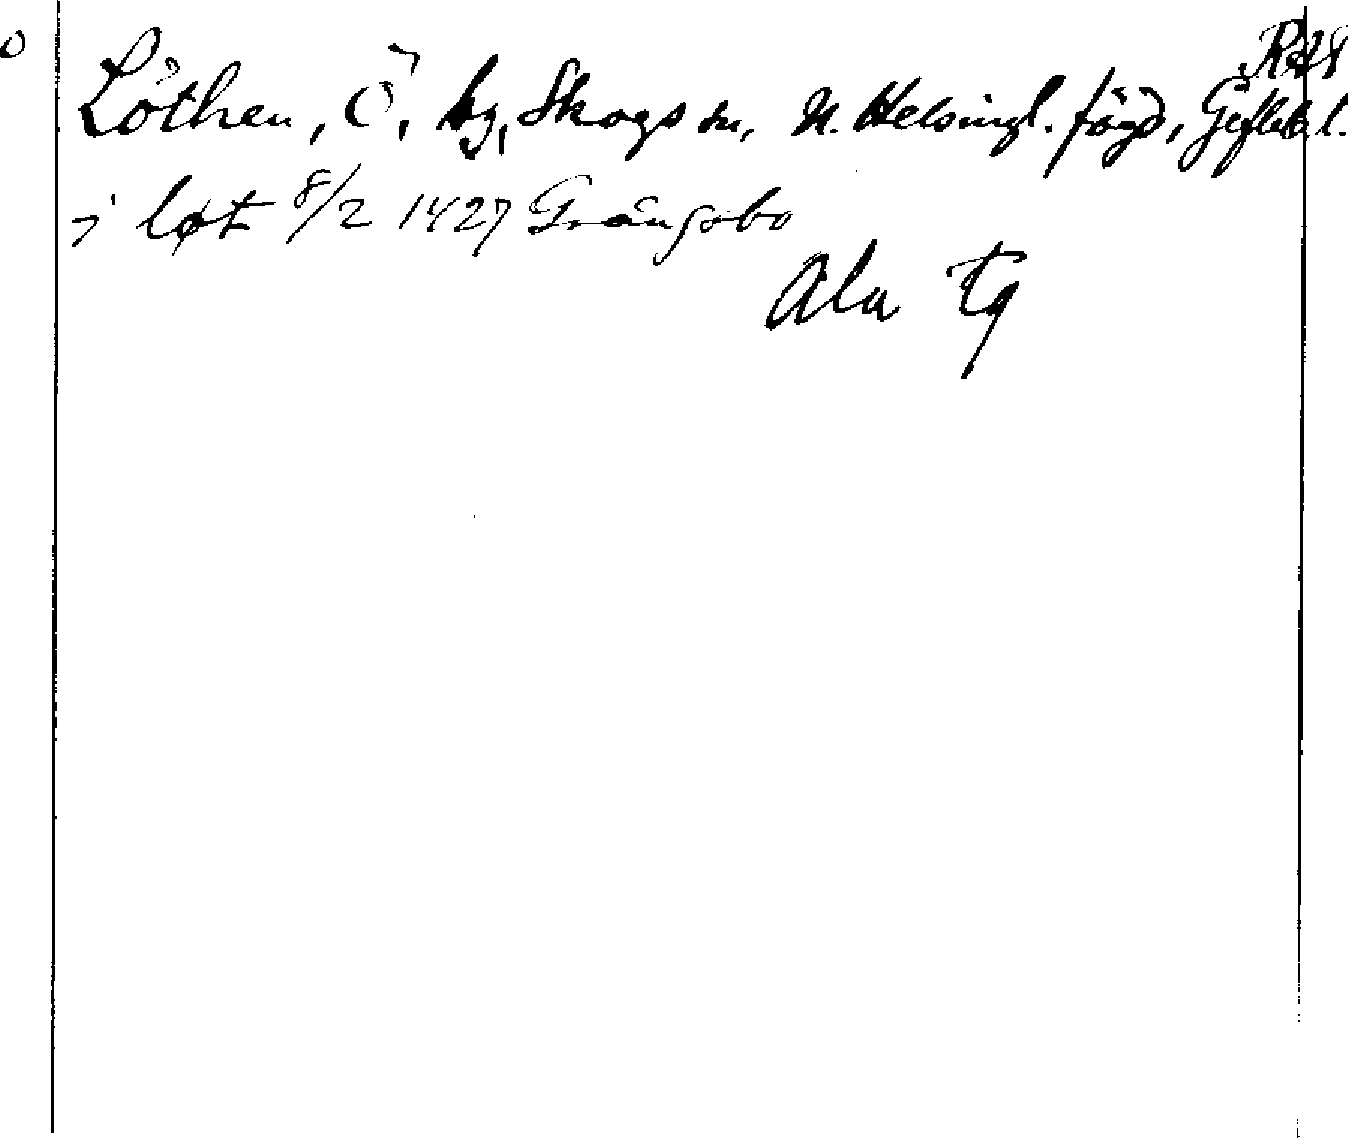 Löthen, Ö, by, Skogs sn, N. Helsingl. fögd, Gefleb. l.
i løt 8/2 1427 Grängsbo
Ala tg